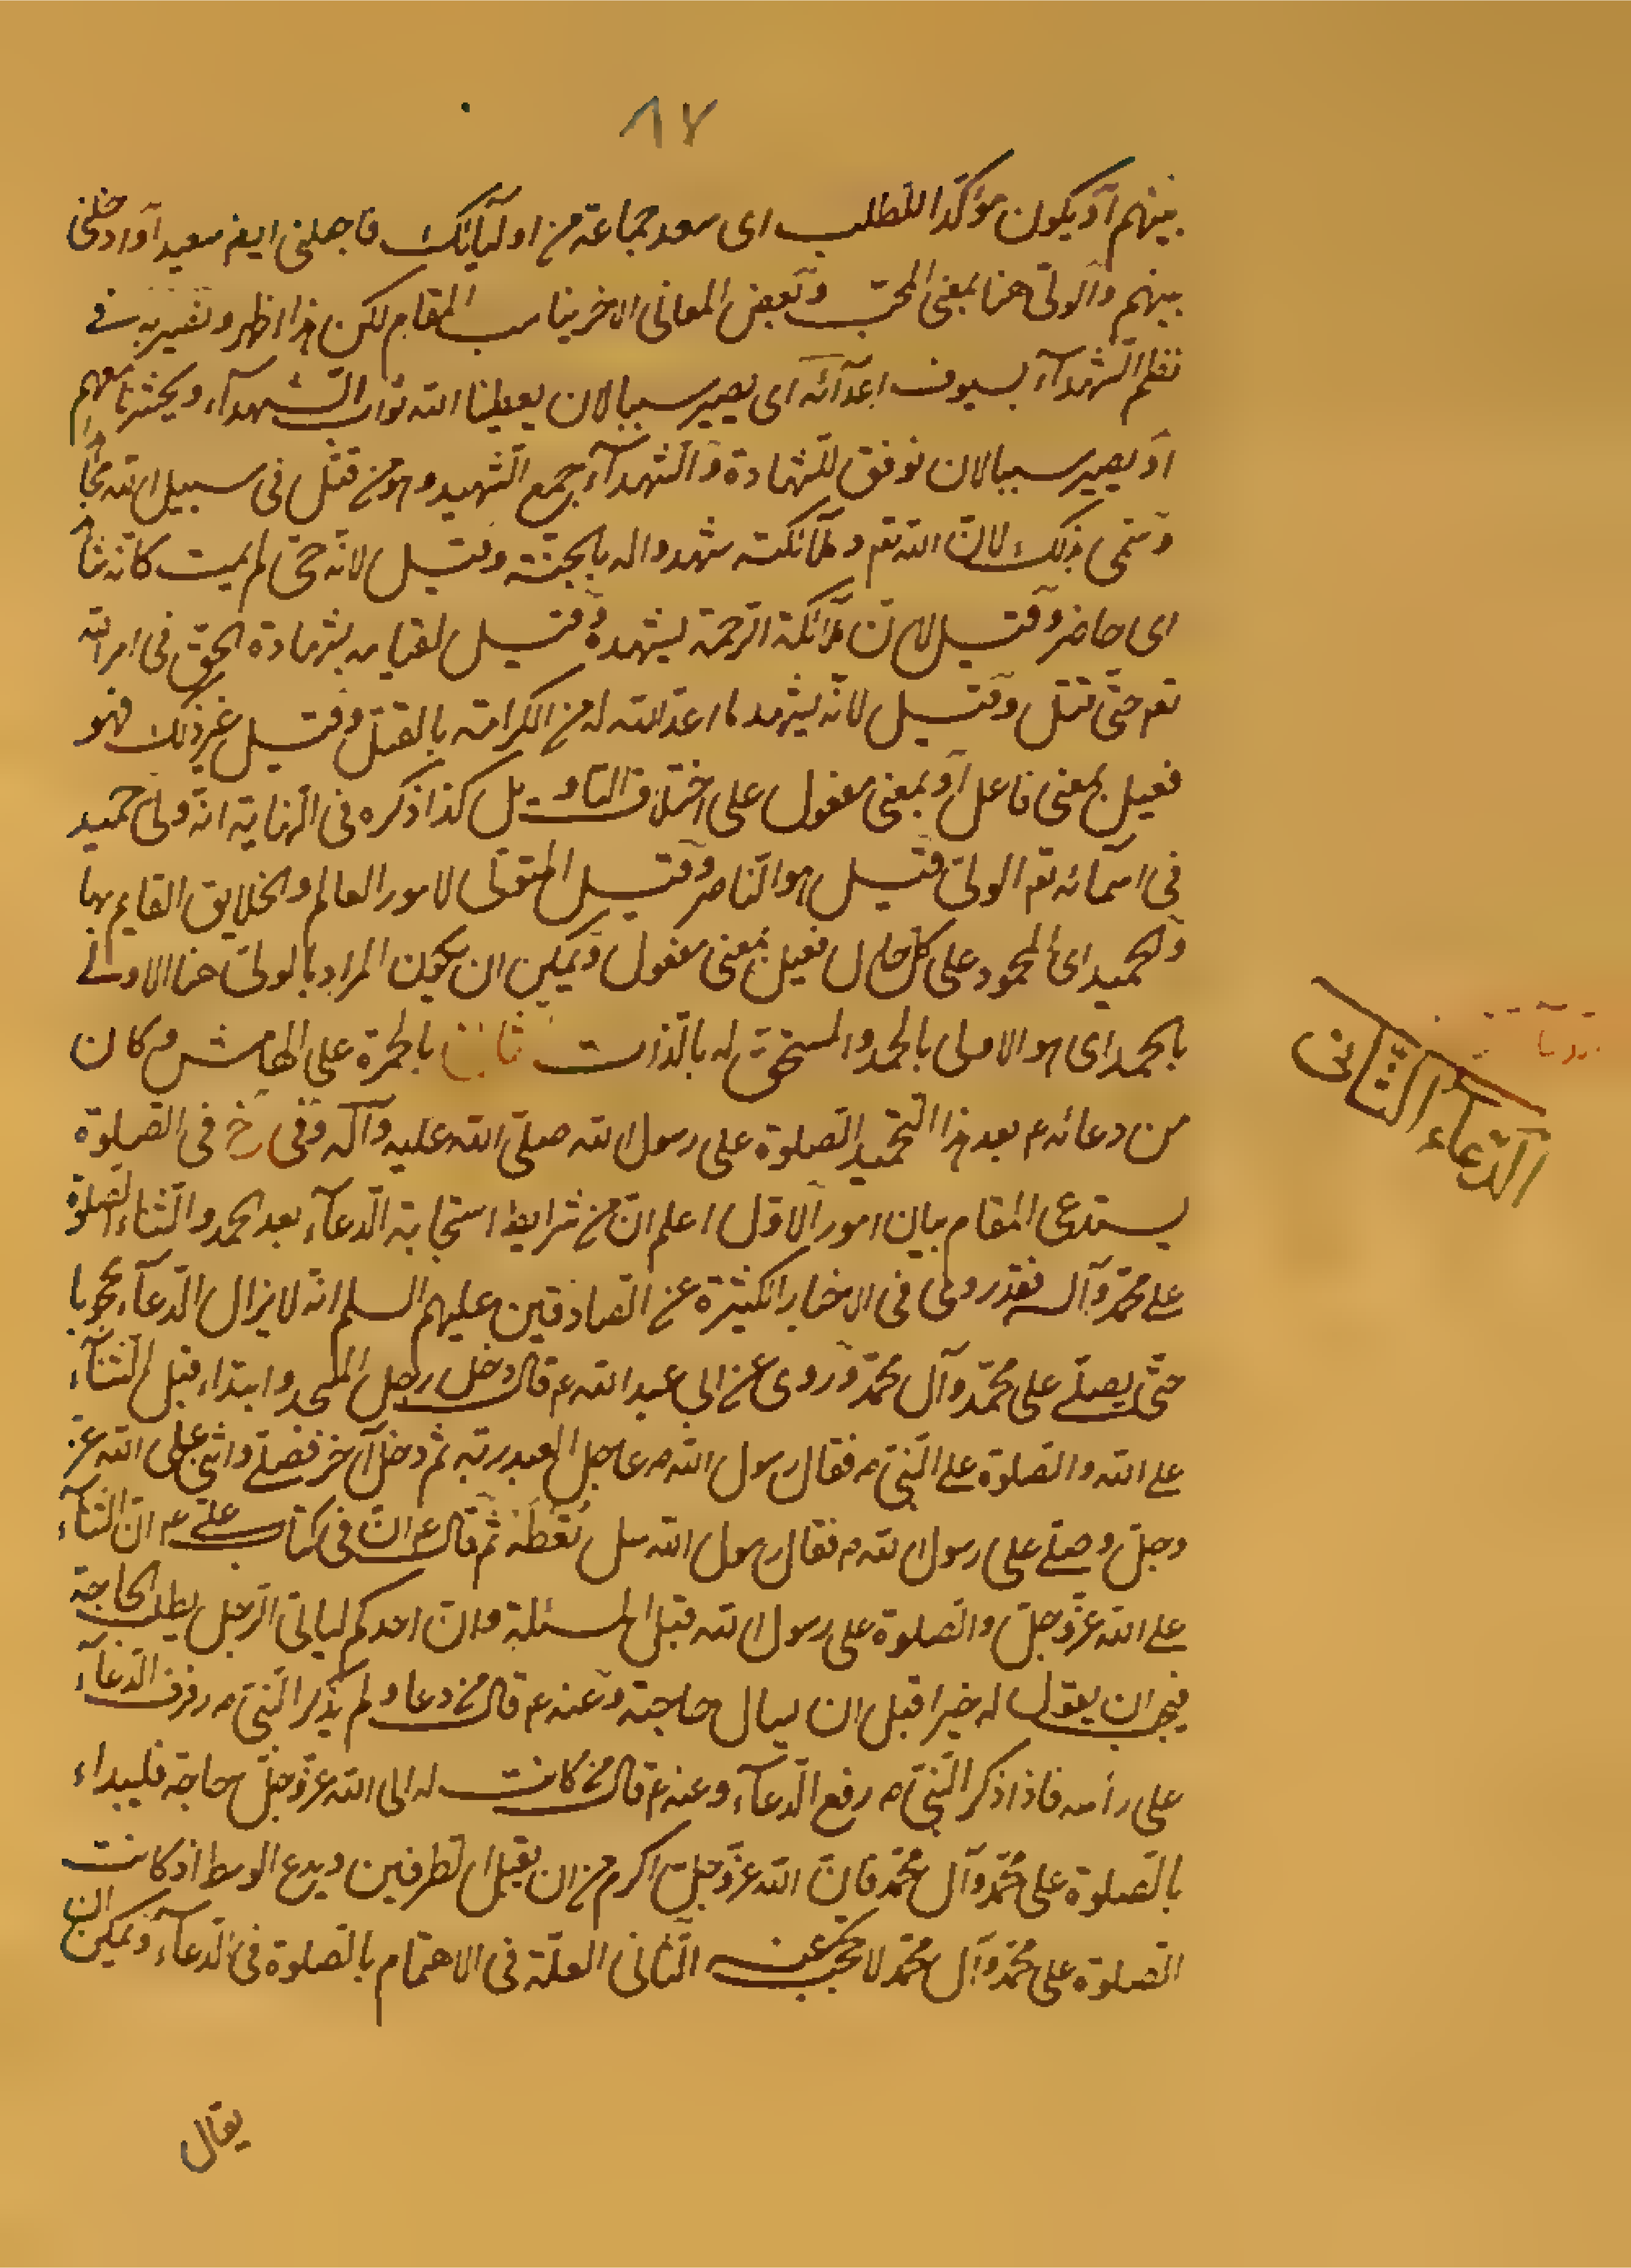 ٨٧
بينهم او يكون مؤكدا للتطلب اى سعد جماعة من اوليائك فاجعلنى ايضم سعيدا او ادخلنى
بينهم والولىّ هنا بمعنى المحبّ وبعض المعانى الاخر يناسب المقام لكن هذا اظهر ونصير به فى
نظم الشهدآء بسيوف اعدآئه اى يصير سببا لان يعطينا الله ثواب الشهدآء ويحشرنا معهم
او يصير سببا لان نوفق للشهادة والشهدآء جمع الشهيد وهو من قتل فى سبيل الله
وسمى بذلك لانّ الله تعم وملائكته شهدوا له بالجنّة وقيل لانّه حىّ لم يمت كانّه شا
اى حاضر وقيل لانّ ملآئكة الرّحمة يشهده وقيل لقيامه بشهادة الحق فى امر الله
تعم حتّى قتل وقيل لانّه يشهد ما اعدّ الله له من الكرامة بالقتل وقيل غير ذلك فهو
فعيل بمعنى فاعل او بمعنى مفعول على اختلاف التاويل كذا ذكره فى النّهاية انّه ولىّ حميد
فى اسمائه تعم الولىّ قيل هو النّاصر وقيل المتولى لامور العالم والخلايق القايم بها
والحميد اى المحمود على كل حال فعيل بمعنى مفعول ويمكن ان يكون المراد بالولىّ هنا الاولى
بالحمد اى هو الاولى بالحمد والمستحق له بالذات باحمرة على الهامش وكان
من دعائه ع بعد هذا التّحميد الصّلوة على رسول الله صلّى الله عليه وآله وفى خ فى الصّلوة
يستدعى المقام بيان امور الاوّل اعلم انّ من شرايط استجابة الدّعآء بعد الحمد والثّناء الصّلوة
على محمّد وآله فقد روى فى الاخبار الكثيرة عن الصّادقين عليهم السلم انّه لا يزال الدّعآء محجوبا
حتّى يصلّى على محمّد وآل محمّد وروى عن ابى عبد الله ع قال دخل رجل المسجد وابتداء قبل الثّنآء
على الله والصّلوة على النّبى ص فقال رسول الله ص عاجل العبد ربّه ثم دخل آخر فصلّى واثنى على الله عزّ
وجلّ وصلّى على رسول الله ص فقال رسول الله سل تُعْطَهْ ثم قال ع انّ فى كتاب علىّ ع انّ الثّنآء
على الله عزّ وجلّ والصّلوة على رسول الله قبل المسئلة وانّ احدكم لياتى الرّجل يطلب الحاجة
فيحب ان يقول له خيرا قبل ان يسال حاجته وعنه ع قال من دعا ولم يذكر النّبى ص رفرف الدّعآء
على راسه فاذا ذكر النّبى ص رفع الدّعآء وعنه ع قال من كانت له الى الله عزّ وجلّ حاجة فليبداء
بالصّلوة على محمّد وآل محمّد فانّ الله عزّ وجلّ اكرم من ان يقبل الطّرفين ويدع الوسط اذ كانت
الصّلوة على محمّد وآل محمّد لا تحجب عنه الثّانى العلّة فى الاهتمام بالصّلوة فى الدّعآء ويمكن ان
يقال
الدّعاء الثّانى